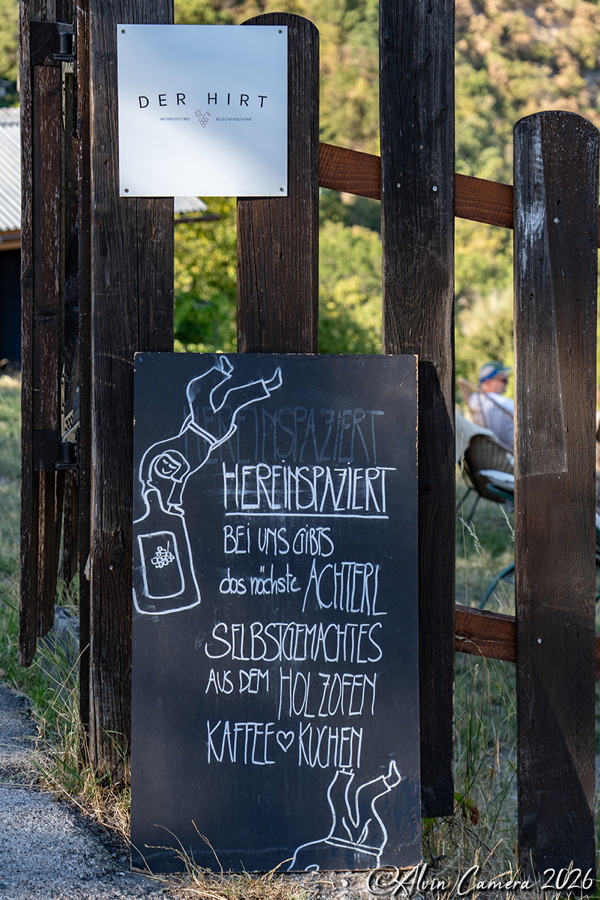 DER HIRT
WEINKOSTEREI BUSCHENSCHANK
HEREINSPAZIERT
HEREINSPAZIERT
BEI UNS GIBTS
das nächste ACHTERL
SELBSTGEMACHTES
AUS DEM HOLZOFEN
KAFFEE♡KUCHEN
©Alvin Camera 2026